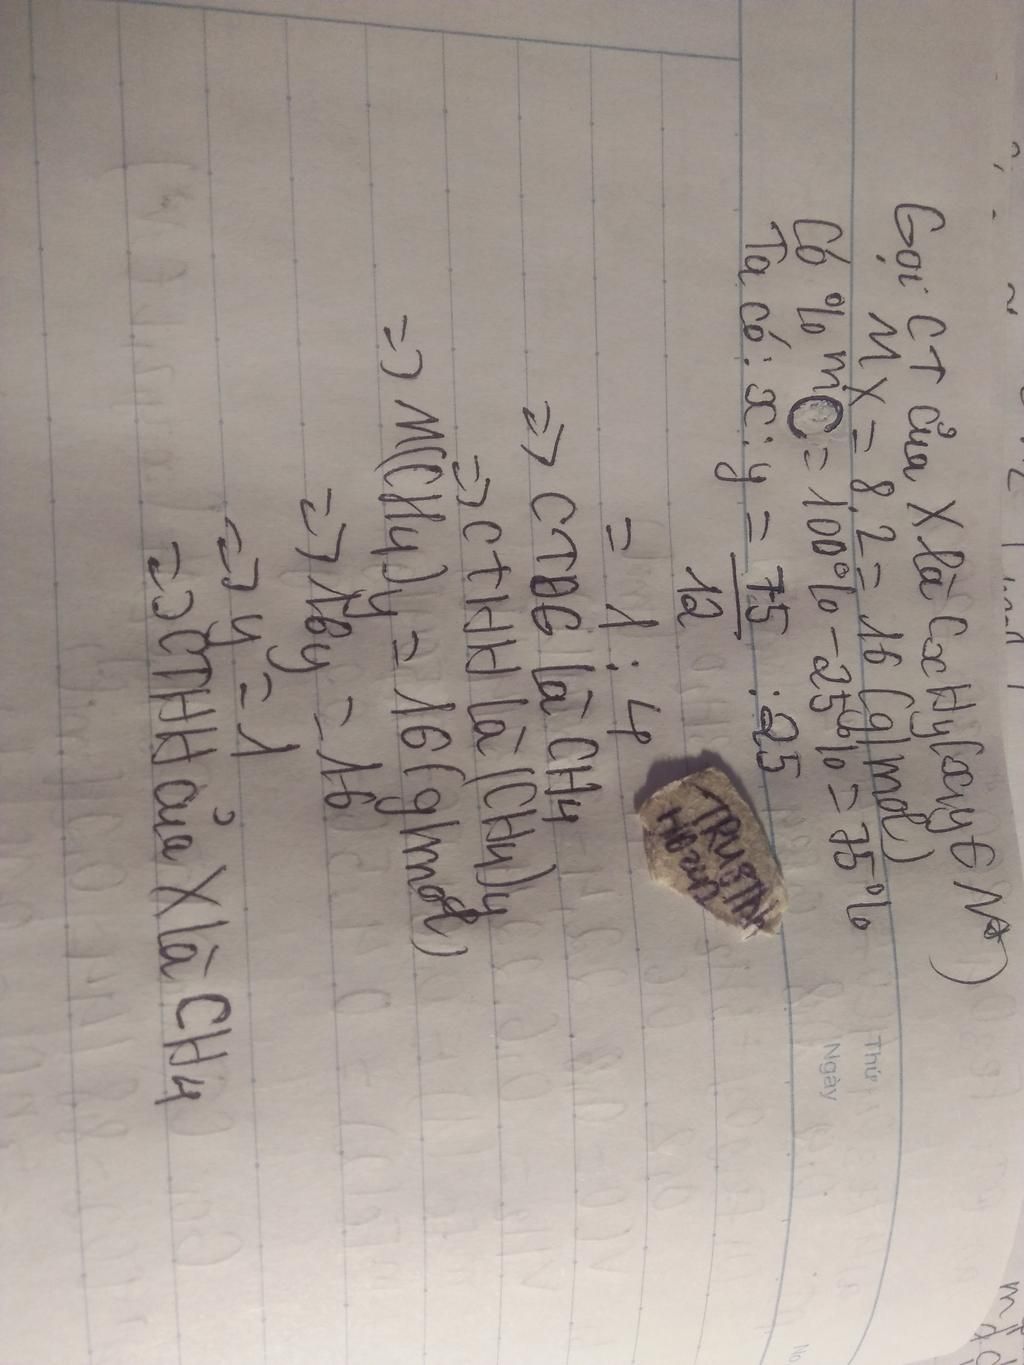 Gọi CT của X là CxHy(x,y ∈ N*)
MX = 8.2 = 16 (g/mol)
Có %mC = 100% - 25% = 75%
Ta có: x:y = 75/12 : 25
= 1 : 4
=> CTĐG là CH4
=> CTHH là (CH4)y
=> M(CH4)y = 16 (g/mol)
=> 16y = 16
=> y = 1
=> CTHH của X là CH4
Thứ
Ngày
No